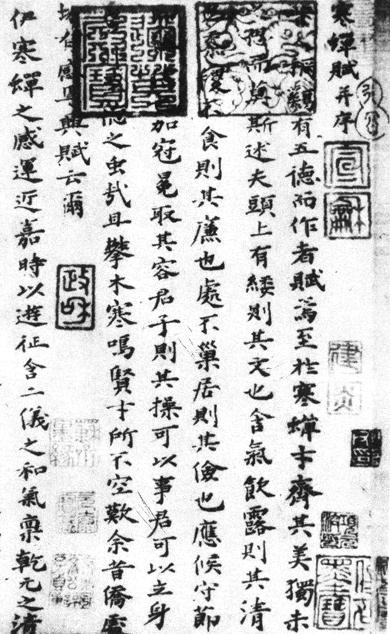 寒蟬賦并序
有五德而作者賦焉至於寒蟬才齊其美獨未
斯述夫頭上有緌則其文也含氣飲露則其清
食則其廉也處不巢居則其儉也應候守節
加冠冕取其容君子則其操可以事君可以立身
之虫哉且攀木寒鳴賢才所不空歎余昔僑處
感焉興賦云爾
伊寒蟬之感運近嘉時以遊征含二儀之和氣稟乾元之清
宣龢
建炎
政和